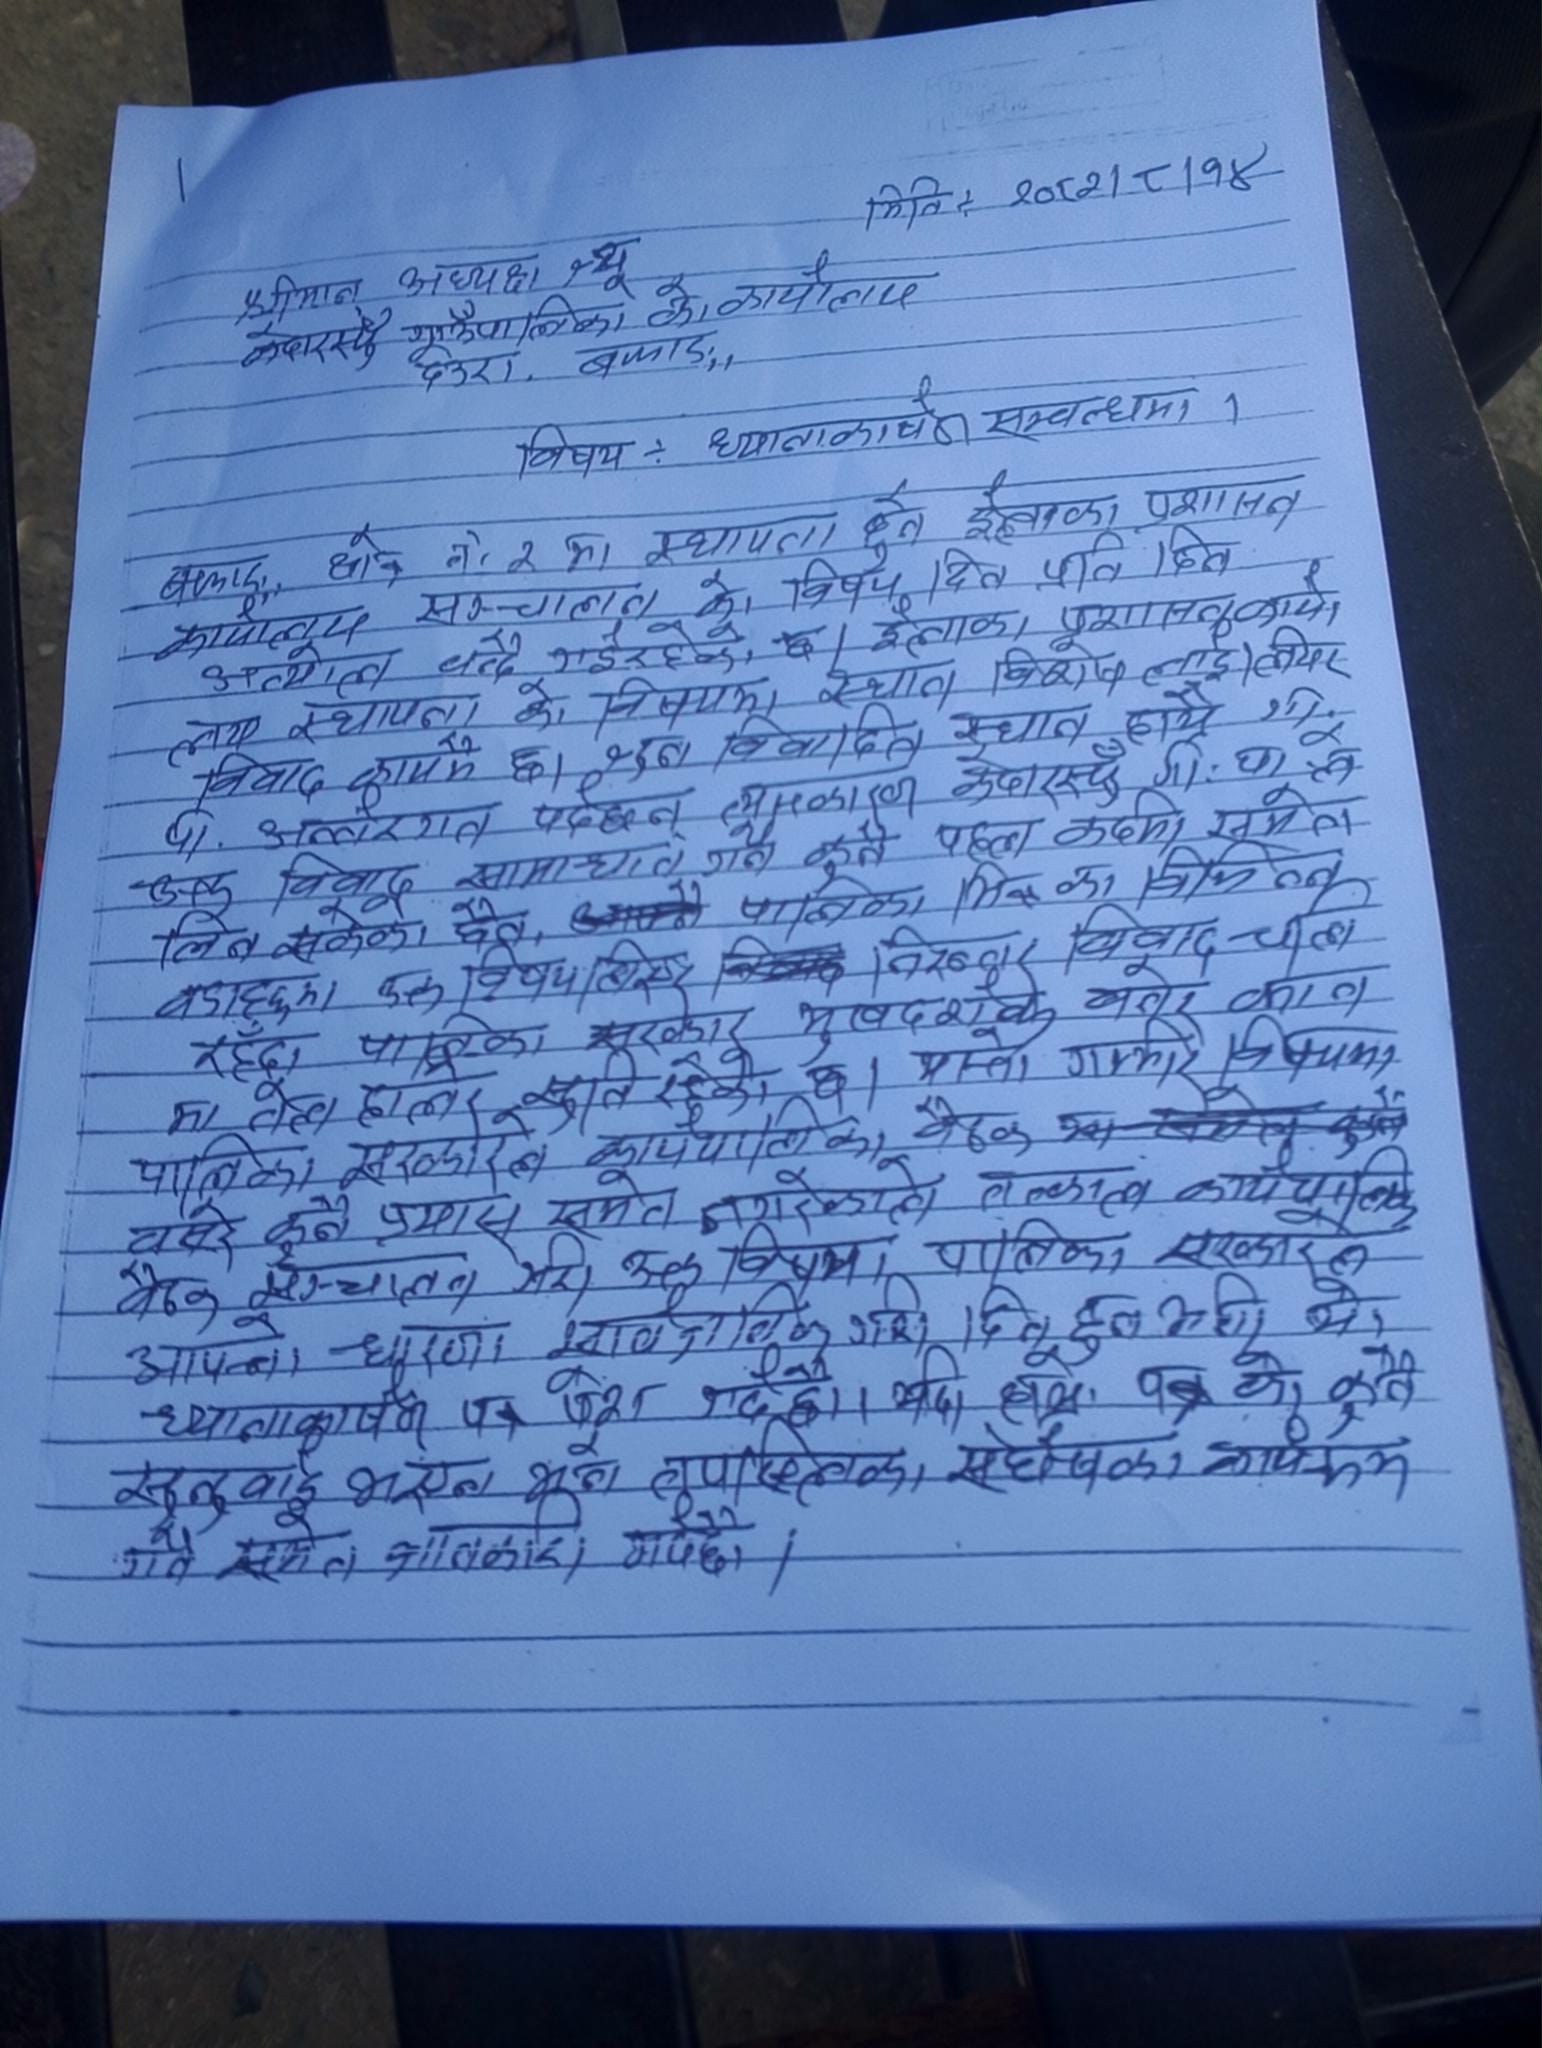 मिति÷ २०८२।८।१४
श्रीमान अध्यक्ष ज्यू
केदारस्युँ गाउँपालिका को कार्यालय
देउरा, बझाङ,,
विषय÷ ध्यानाकार्षण सम्वन्धमा।
बझाङ,, क्षेत्र नं. २ मा स्थापना हुने ईलाका प्रशासन
कार्यालय सन्चालन को विषय दिन प्रति दिन
अन्योल वन्दै गईरहेको छ। ईलाका प्रशासन कार्या
लय स्थापना को विषयमा स्थान विशेष लाई लियर
विवाद कायमै छ। विवादित स्थान हाम्रै गा.
पा. अन्तरगत पर्दछन् त्यसकारण केदारस्युँ गा. पा. ले
उक्त विवाद सामाधान गर्ने कुनै पहल कदमी समेत
लिन सकेको छैन, पालिका भित्र का विभिन्न
वडाहरुमा उक्त विषय लियर निरन्तर विवाद चलि
रहँदा पालिका सरकार मुखदर्शक बनेर कान
मा तेल हालेर सुति रहेको छ। यस्तो गम्भीर विषयमा
पालिका सरकारले कार्यपालिका बैठक
वसेर कुनै प्रयास समेत नगरेकोले तत्काल कार्यपालिका
बैठक सन्चालन गरी उक्त विषयमा पालिका सरकारले
आफ्नो धारणा सार्वजनिक गरी दिनु हुन भनी यो
ध्यानाकार्षण पत्र पेश गर्दछौ। यदि हाम्रो पत्र को कुनै
सुनुवाई भएन भने त्यपछिका संर्घषका कार्यक्रम
गर्ने समेत जानकारी गर्दछौ।